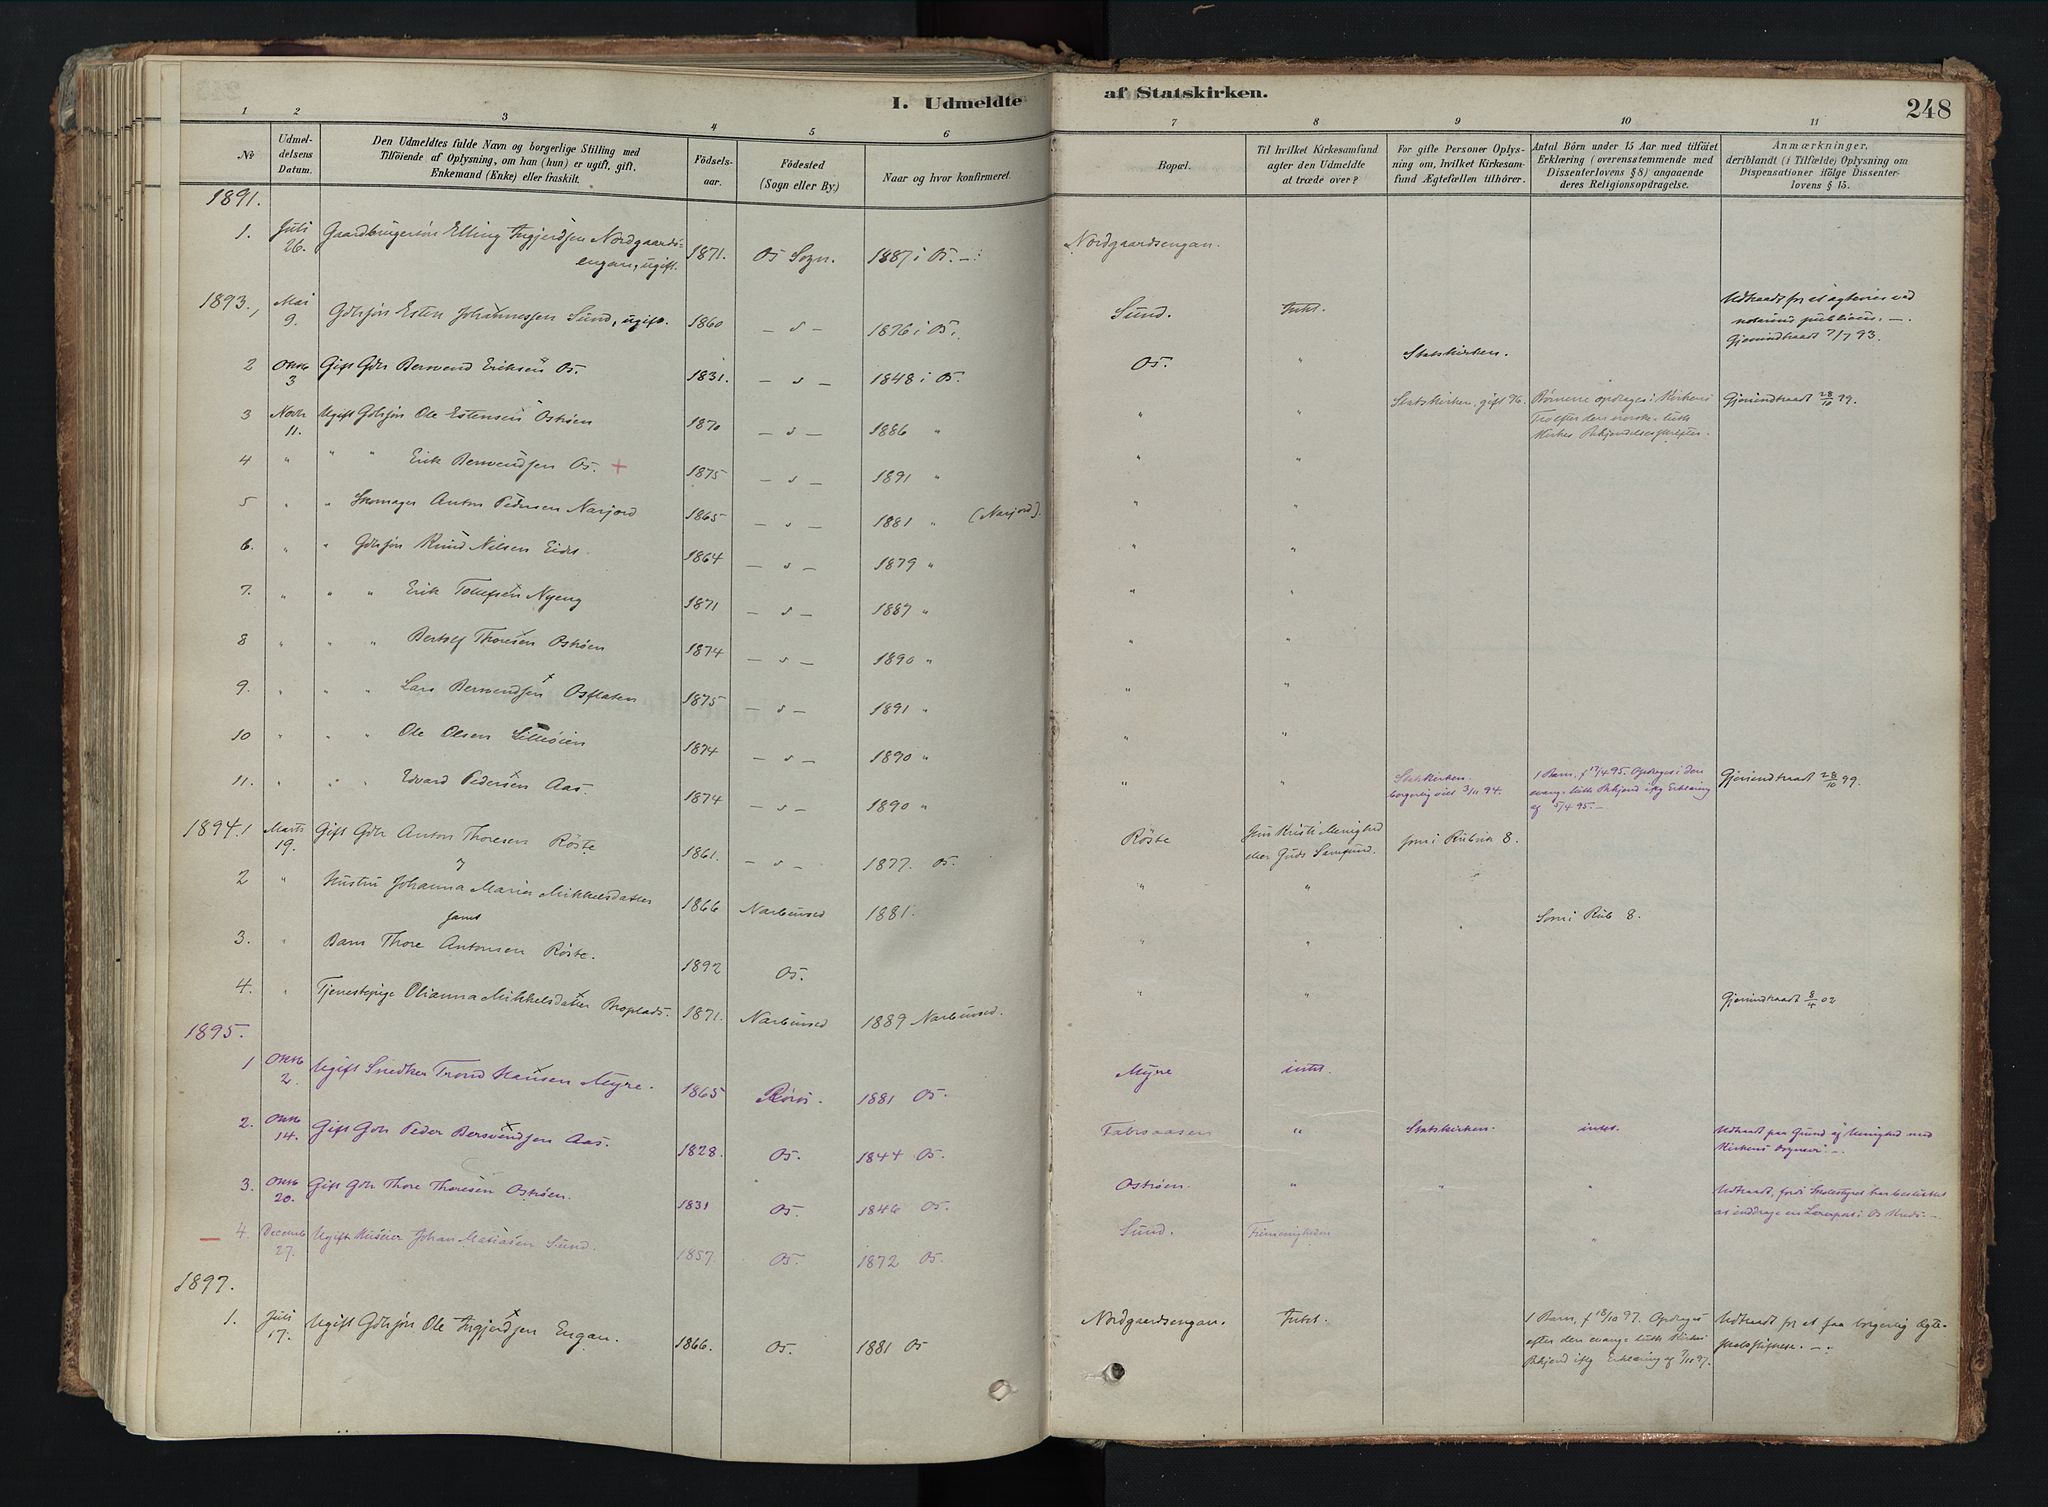 I. Udmeldte af Statskirken.
248
1 2 3 4 5 6 7 8 9 10 11
№
Udmel-
delsens
Datum.
Den Udmeldtes fulde Navn og borgerlige Stilling med
Tilföiende af Oplysning, om han (hun) er ugift, gift,
Enkemand (Enke) eller fraskilt.
Födsels-
aar.
Födested
(Sogn eller By.)
Naar og hvor konfirmeret.
Bopæl.
Til hvilket Kirkesamfund
agter den Udmeldte
at træde over?
For gifte Personer Oplys-
ning om, hvilket Kirkesam-
fund Ægtefællen tilhörer.
Antal Börn under 15 Aar med tilföiet
Erklæring (overensstemmende med
Dissenterlovens § 8) angaaende
deres Religionsopdragelse.
Anmærkninger,
deriblandt (i Tilfælde) Oplysning om
Dispensationer ifölge Dissenter-
lovens § 15.
1891.
1. Juli 26. Gaardbrugersön Elling Ingjerdsen Nordgaards-
engan, ugift. 1871. Os Sogn. 1887 i Os. Nordgaardsengan.
1893, Mai 9. Gbrsön Esten Johannessen Sund, ugift. 1860 — s — 1876 i Os. Sund. Intet. Udtraadt for et ægtevies ved
notarius publicus. —
Gjenindtraadt 7/7 93.
2 Oktob 3 Gift Gbr Bersvend Eriksen Os. 1831. — s — 1848 i Os. Os. " Statskirken.
3 Novbr 11. Ugift Gbrsön Ole Estensen Oströen 1870 — s — 1886 " " " Statskirken, gift 96. Börnene opdrages i Kirkens
Tro efter den norske luth
Kirkes Bekjendelsesskrifter. Gjenindtraadt 28/10 99.
4 " " " Erik Bersvendsen Os. + 1875 — s — 1891 " " "
5 " " Skomager Anton Pedersen Narjord 1865 — s — 1881 " (Narjord). " "
6. " " Gbrsön Knud Nilsen Eidet. 1864 — s — 1879 " " "
7. " " " Erik Tollefsen Nyeng 1871 — s — 1887 " " "
8 " " " Bertolf Thoresen Oströen 1874 — s — 1890 " " "
9. " " " Lars Bersvendsen Osflaten 1875 — s — 1891 " " "
10 " " " Ole Olsen Lilleöien 1874 — s — 1890 " " "
11. " " " Edvard Pedersen Aas. 1874 — s — 1890 " " " Statskirken.
borgerlig viet 3/11 94. 1 Barn, f 17/4 95. Opdrages i den
evang. luth Bekjend iflg Erklæring
af 5/4 95. — Gjenindtraadt 28/10 99.
1894. 1 Marts 19. Gift Gbr Anton Thoresen Röste 1861. — s — 1877. Os. Röste Jesu Kristi Menighed
eller Guds Samfund. som i Rubrik 8.
2 " Hustru Johanna Marie Mikkelsdatter
samt 1866 Narbuvoed 1881. " " Som i Rub 8.
3. " Barn Thore Antonsen Röste. 1892 Os. " "
4. " Tjenestepige Olianna Mikkelsdatter Broplads. 1871. Narbuvoed 1889 Narbuvoed. " " Gjenindtraadt 8/4 02
1895.
1 Oktob 2. Ugift Snedker Trond Hansen Myre. 1865 Röros. 1881 Os. Myre intet.
2. Oktob 14. Gift Gbr Peder Bersvendsen Aas. 1828. Os. 1844 Os. " Statskirken. intet. Udtraadt paa Grund af Uenighed med
Kirkens —
3. Oktob 20. Gift Gbr Thore Thoresen Oströen. 1831 Os. 1846 Os. Oströen. " " " Udtraadt, fordi Skolestyret har besluttet
at inddrage en Lærerpost i Os Kreds. —
4. Decemb 27. Ugift Huseier Johan Matiasen Sund. 1857. Os. 1872 Os. Sund. Frimenigheden "
1897.
1. Juli 17. Ugift Gbrsön Ole Ingjerdsen Engan. 1866. Os. 1881 Os Nordgaardsengan. Intet. 1 Barn, f 18/10 97. Opdrages
efter den evang luth Kirkes
Bekjend iflg Erklæring af 7/11 97. Udtraadt for at faa borgerlig Ægte-
skabsstiftelse. —